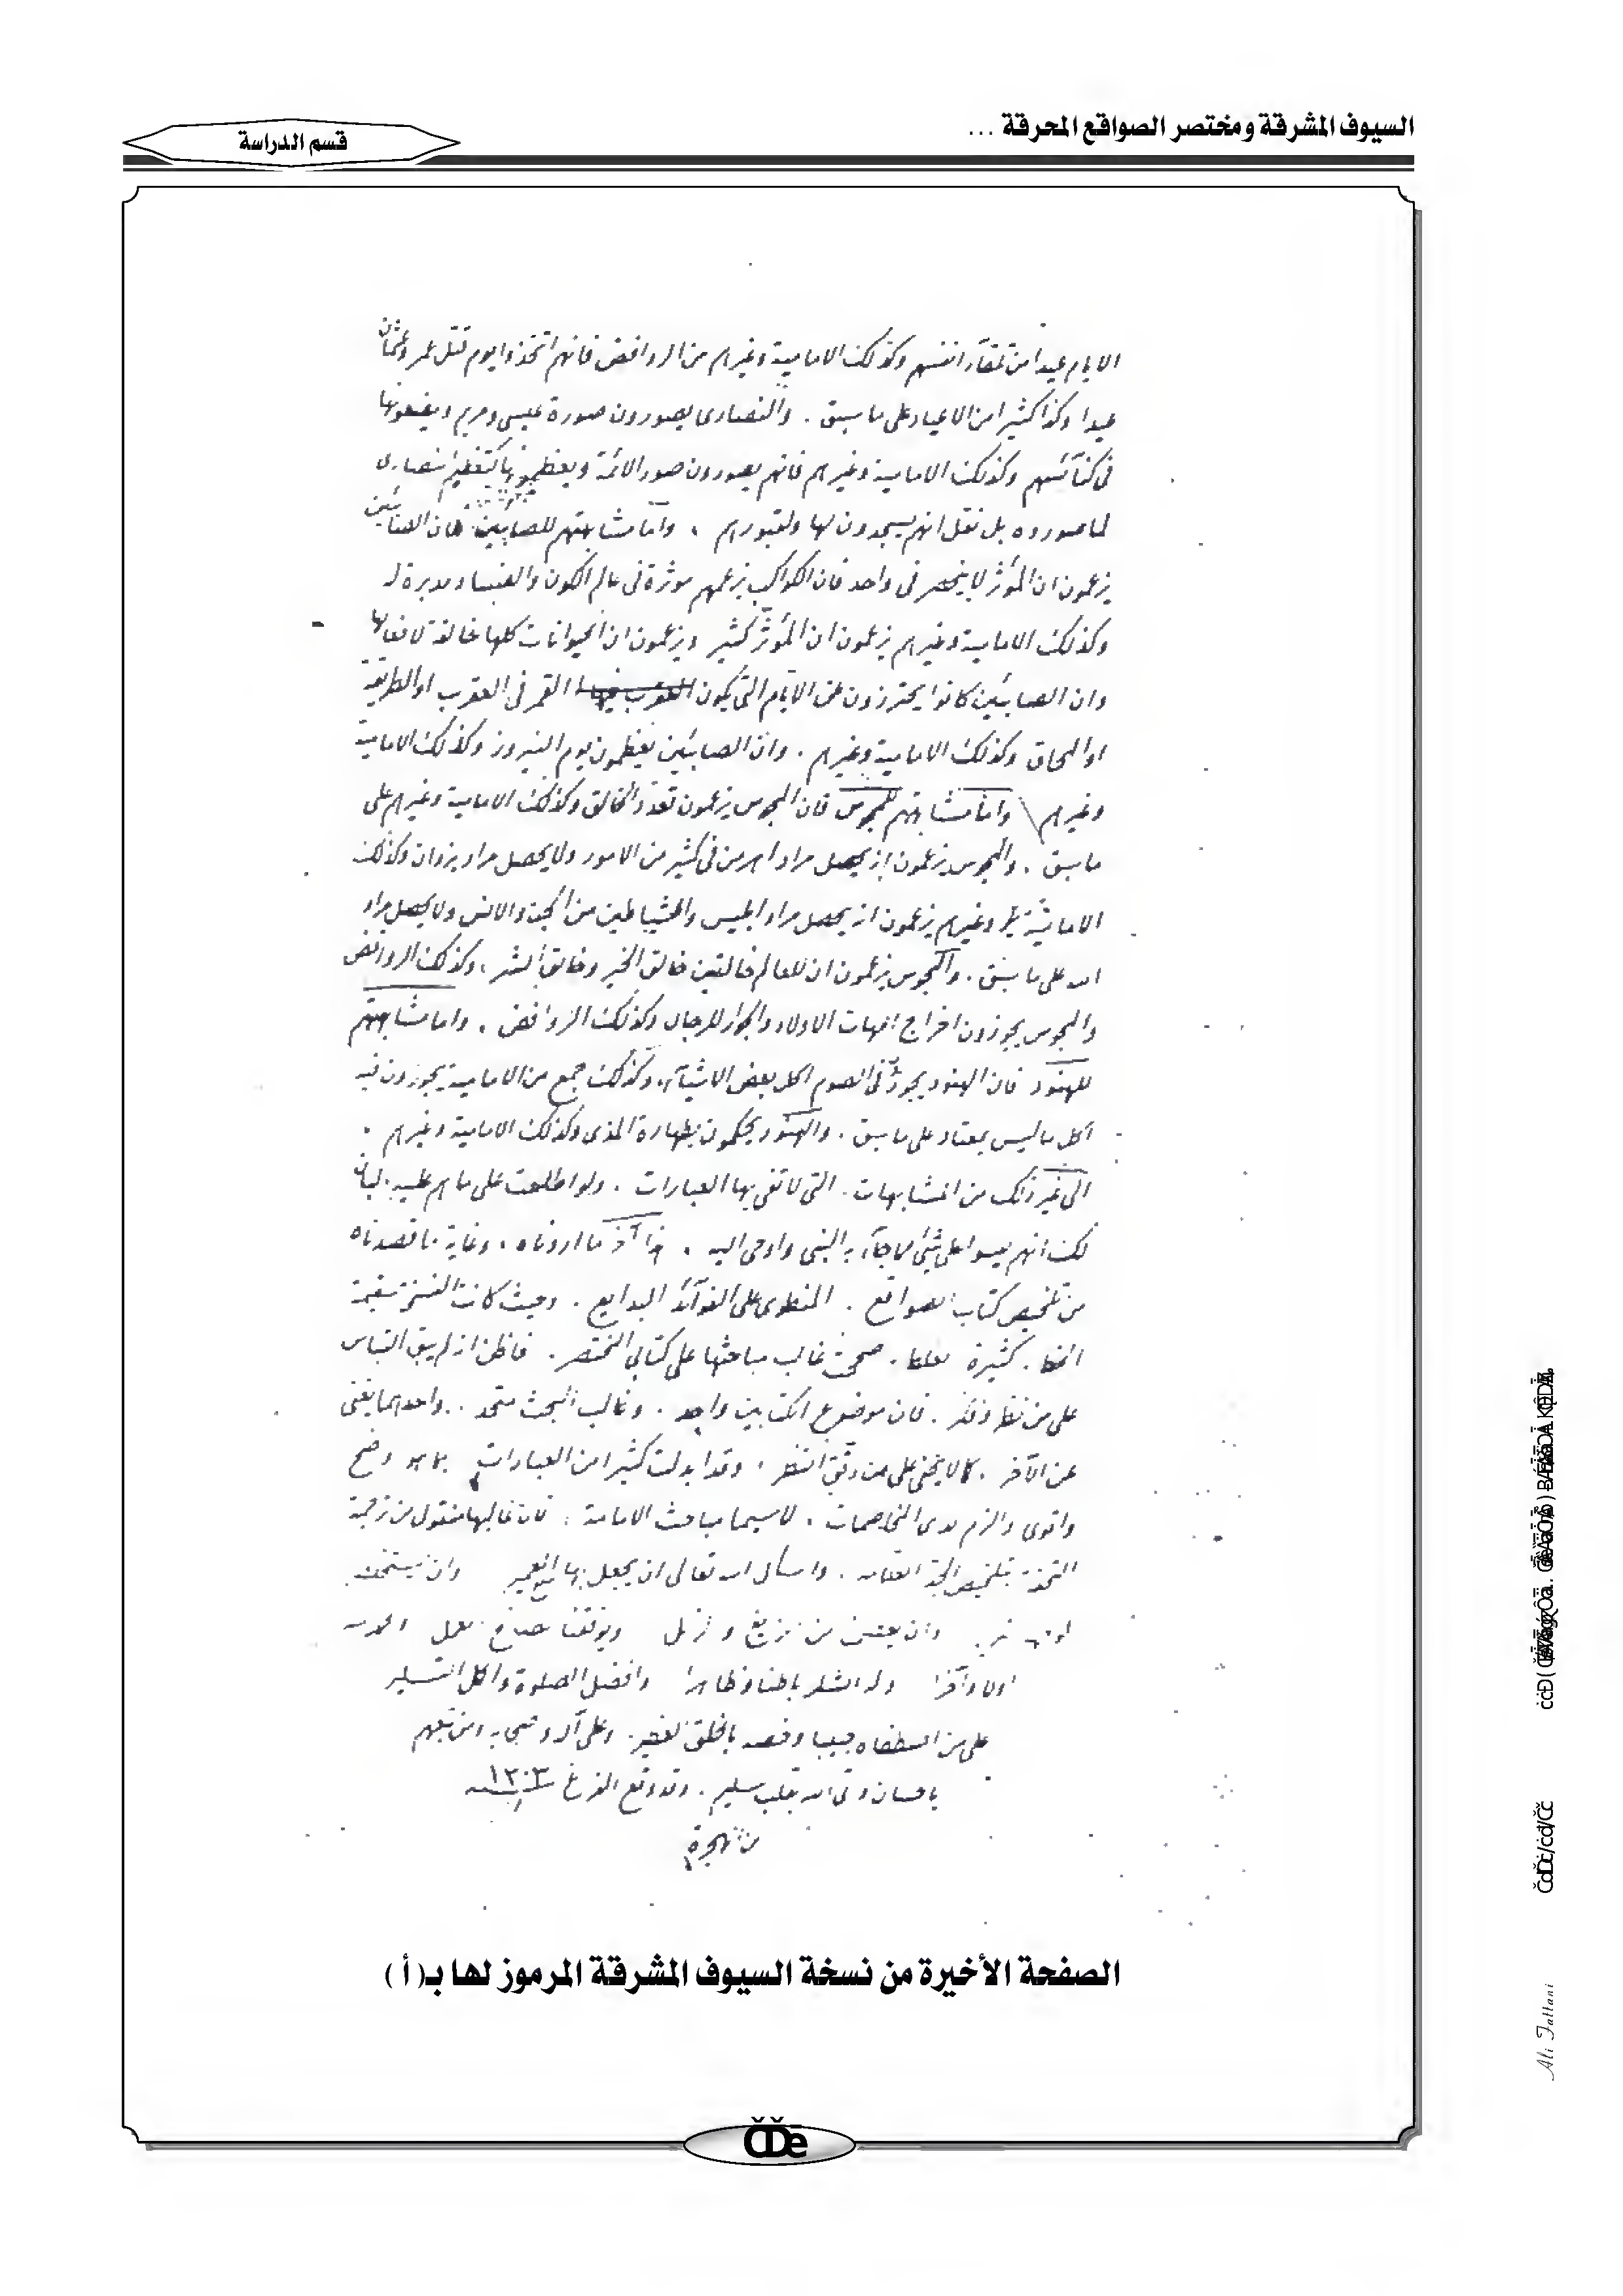 السيوف المشرقة ومختصر الصواقع المحرقة ...
قسم الدراسة
الايام عيدا من تلقآء انفسهم وكذلك الامامية وغيرهم من الروافض فانهم اتخذوا يوم قتل عمر وعثمان
عيدا وكذا كثيرا من الاعياد على ما سبق . والنصارى يصورون صورة عيسى ومريم ويضعونها
فى كنآئسهم وكذلك الامامية وغيرهم فانهم يصورون صور الائمة ويعظمونها كتعظيم النصارى
لما صوروه بل نقل انهم يسجدون لها ولقبورهم . واما مشابهتهم للصابئين فان الصابئين
يزعمون ان المؤثر لا ينحصر فى واحد فان الكواكب بزعمهم موثرة فى عالم الكون والفساد مدبرة له
وكذلك الامامية وغيرهم يزعمون ان المؤثر كثير ويزعمون ان الحيوانات كلها خالقة لافعالها
وان الصابئين كانوا يحترزون عن الايام التى يكون القمر فى العقرب او الطريقة
او المحاق وكذلك الامامية وغيرهم . وان الصابئين يعظمون يوم النيروز وكذلك الامامية
وغيرهم واما مشابهتهم للمجوس فان المجوس يزعمون تعدد الخالق وكذلك الامامية وغيرهم على
ما سبق . والمجوس يزعمون انه يحصل مراد اهرمن فى كثير من الامور ولا يحصل مراد يزدان وكذلك
الامامية وغيرهم يزعمون انه يحصل مراد ابليس والشياطين من الجن والانس ولا يحصل مراد
الله على ما سبق . والمجوس يزعمون ان للعالم خالقين خالق الخير وخالق الشر ، وكذلك الروافض
والمجوس يجوزون اخراج امهات الاولاد والجوار للرجال وكذلك الروافض . واما مشابهتهم
للهنود فان الهنود يجوز فى الصوم اكل بعض الاشيآء وكذلك جمع من الامامية يجوزون فيه
اكل ما ليس بمعتاد على ما سبق . والهنود يحكمون بطهارة المذى وكذلك الامامية وغيرهم .
الى غير ذلك من المشابهات . التى لا تفى بها العبارات . ولو اطلعت على ما هم عليه . لبان
لك انهم ليسوا على شئ مما جآء به النبى واوحى اليه . هذا آخر ما اردناه ، وغاية ما قصدناه
من تلخيص كتاب الصواقع . المنطوى على الفوآئد البدايع . وحيث كانت النسخة سقيمة
الخط . كثيرة الغلط . صححت غالب مباحثها على كتابى المختصر . فاظن انه لم يبق التباس
على من نظر وفكر . فان موضوع الكتابين واحد . وغالب البحث متحد . واحدهما يغنى
عن الآخر . كما لا يخفى على من دقق النظر . وقد ابدلت كثيرا من العبارات بما هو اوضح
واقوى والزم لدى المخاصمات . لا سيما مباحث الامامة . فان غالبها منقول من ترجمة
التحفة . واسأل الله تعالى ان يجعل
وان يعصمنا من زيغ ويوفقنا لصالح العمل والحمد لله
اولا وآخرا وله الشكر باطنا وظاهرا وافضل الصلوة واكمل التسليم
على من اصطفاه حبيبا وخصه بالخلق العظيم . وعلى آله وصحبه ومن تبعهم
باحسان واتى الله بقلب سليم . وقد وقع الفراغ سنة ١٣٠٣
من الهجرة
الصفحة الأخيرة من نسخة السيوف المشرقة المرموز لها بـ( أ )
Ali Fattani